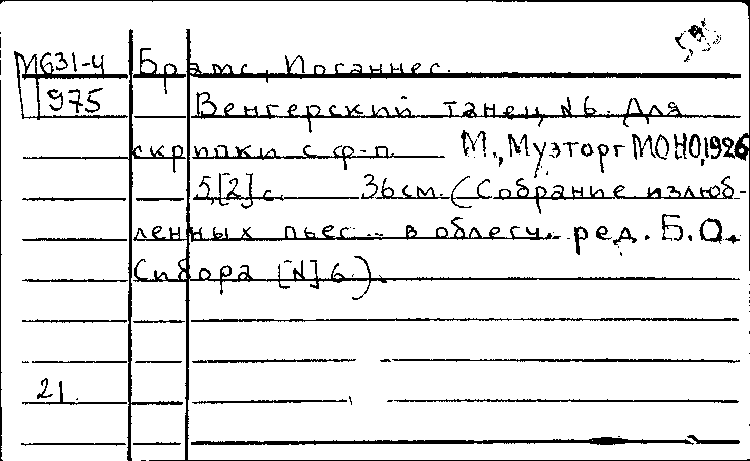 М631-4 Брамс, Иоганнес.
975 Венгерский танец, N6. Для
скрипки с ф-п. М., Музторг МОНО, 1926
5,[2] с. 36см. (Собрание излюб-
ленных пьес .. в облегч. ред. Б.О.
Сибора [N] 6.).
21